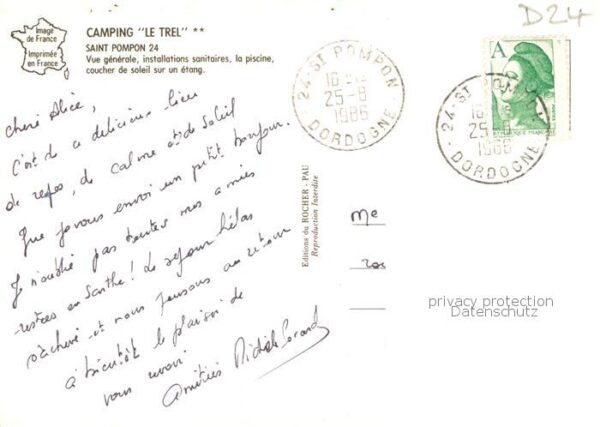 D24
Image
de France
Imprimée
en France
CAMPING "LE TREL" **
SAINT POMPON 24
Vue générale, installations sanitaires, la piscine,
coucher de soleil sur un étang.
24-ST POMPON
16 H
25-8
1986
DORDOGNE
A
24-ST POMPON
16 H
25-8
1986
DORDOGNE
Chère Alice,
C'est de ce délicieux lieu
de repos, de calme et de soleil
que je vous envoi un petit bonjour.
Je n'oublie pas toutes mes amies
restées en Sarthe! Le séjour hélas
s'achève et nous pensons au retour
à bientôt le plaisir de
vous revoir
Amitiés Michèle
Editions du ROCHER - PAU
Reproduction Interdite
Me
privacy protection
Datenschutz